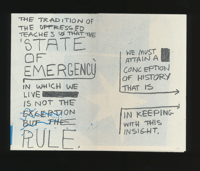 THE TRADITION OF
THE OPPRESSED
TEACHES US THAT THE
"STATE
OF
EMERGENCY"
IN WHICH WE
LIVE
IS NOT THE
EXCEPTION
BUT THE
RULE.
WE MUST
ATTAIN A
CONCEPTION
OF HISTORY
THAT IS
IN KEEPING
WITH THIS
INSIGHT.